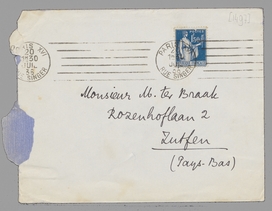 PARIS XVI
20
1530
JUIL
RUE SINGER
PARIS XVI
RUE SINGER
Monsieur M. ter Braak
Rozenhoflaan 2
Zutfen
(Pays-Bas)